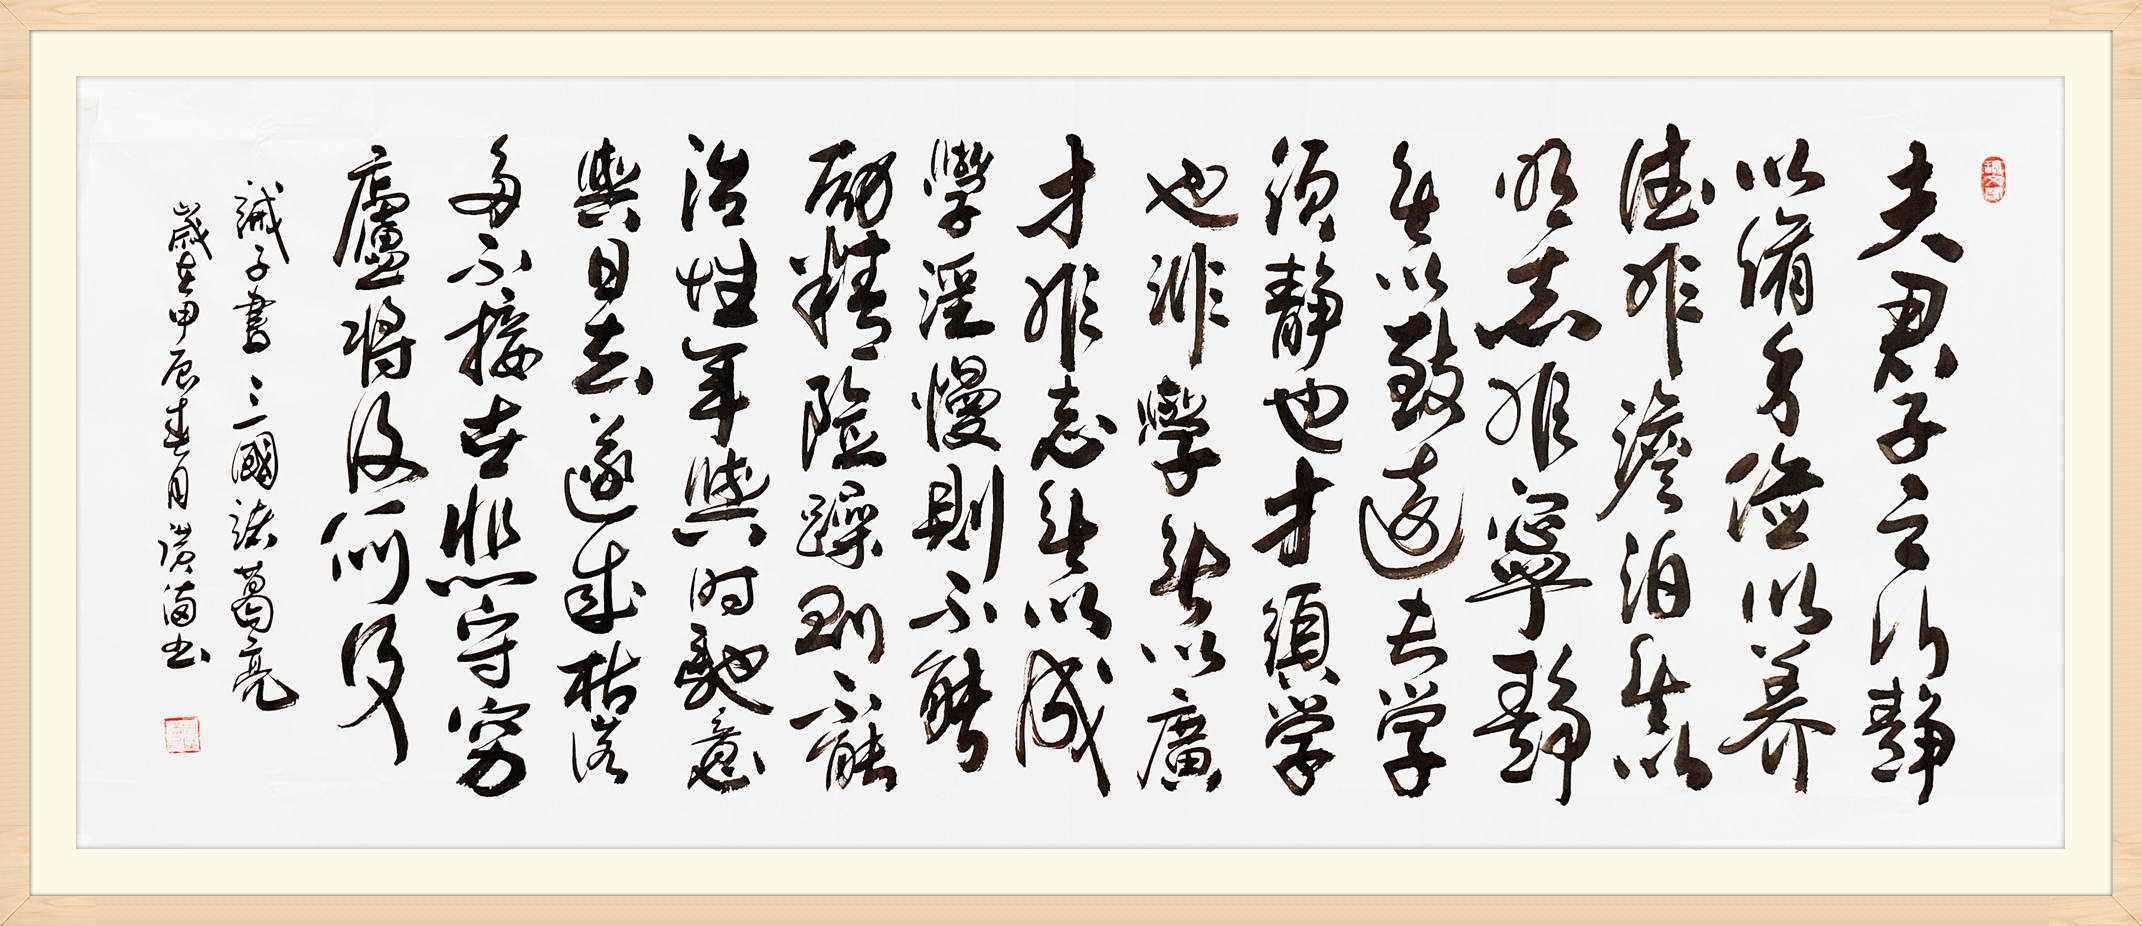 夫君子之行靜
以脩身儉以养
德非澹泊無以
明志非寧靜
無以致遠夫学
須靜也才須学
也非學無以廣
才非志無以成
學淫慢則不能
励精險躁則不能
治性年與时馳意
與日去遂成枯落
多不接世悲守窮
廬将復何及
誡子書 三國諸葛亮
歲在甲辰春月书